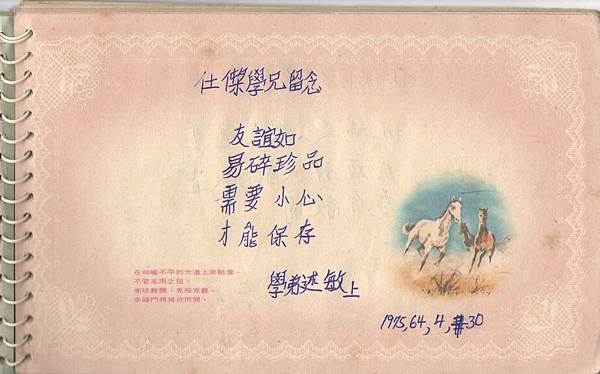 仕傑學兄留念
友誼如
易碎珍品
需要小心
才能保存
學弟述敏上
1975,64,4,30
在崎嶇不平的大道上奔馳着,
不管風雨之阻,
衝破難關,克服克難,
幸福門將為你而開。